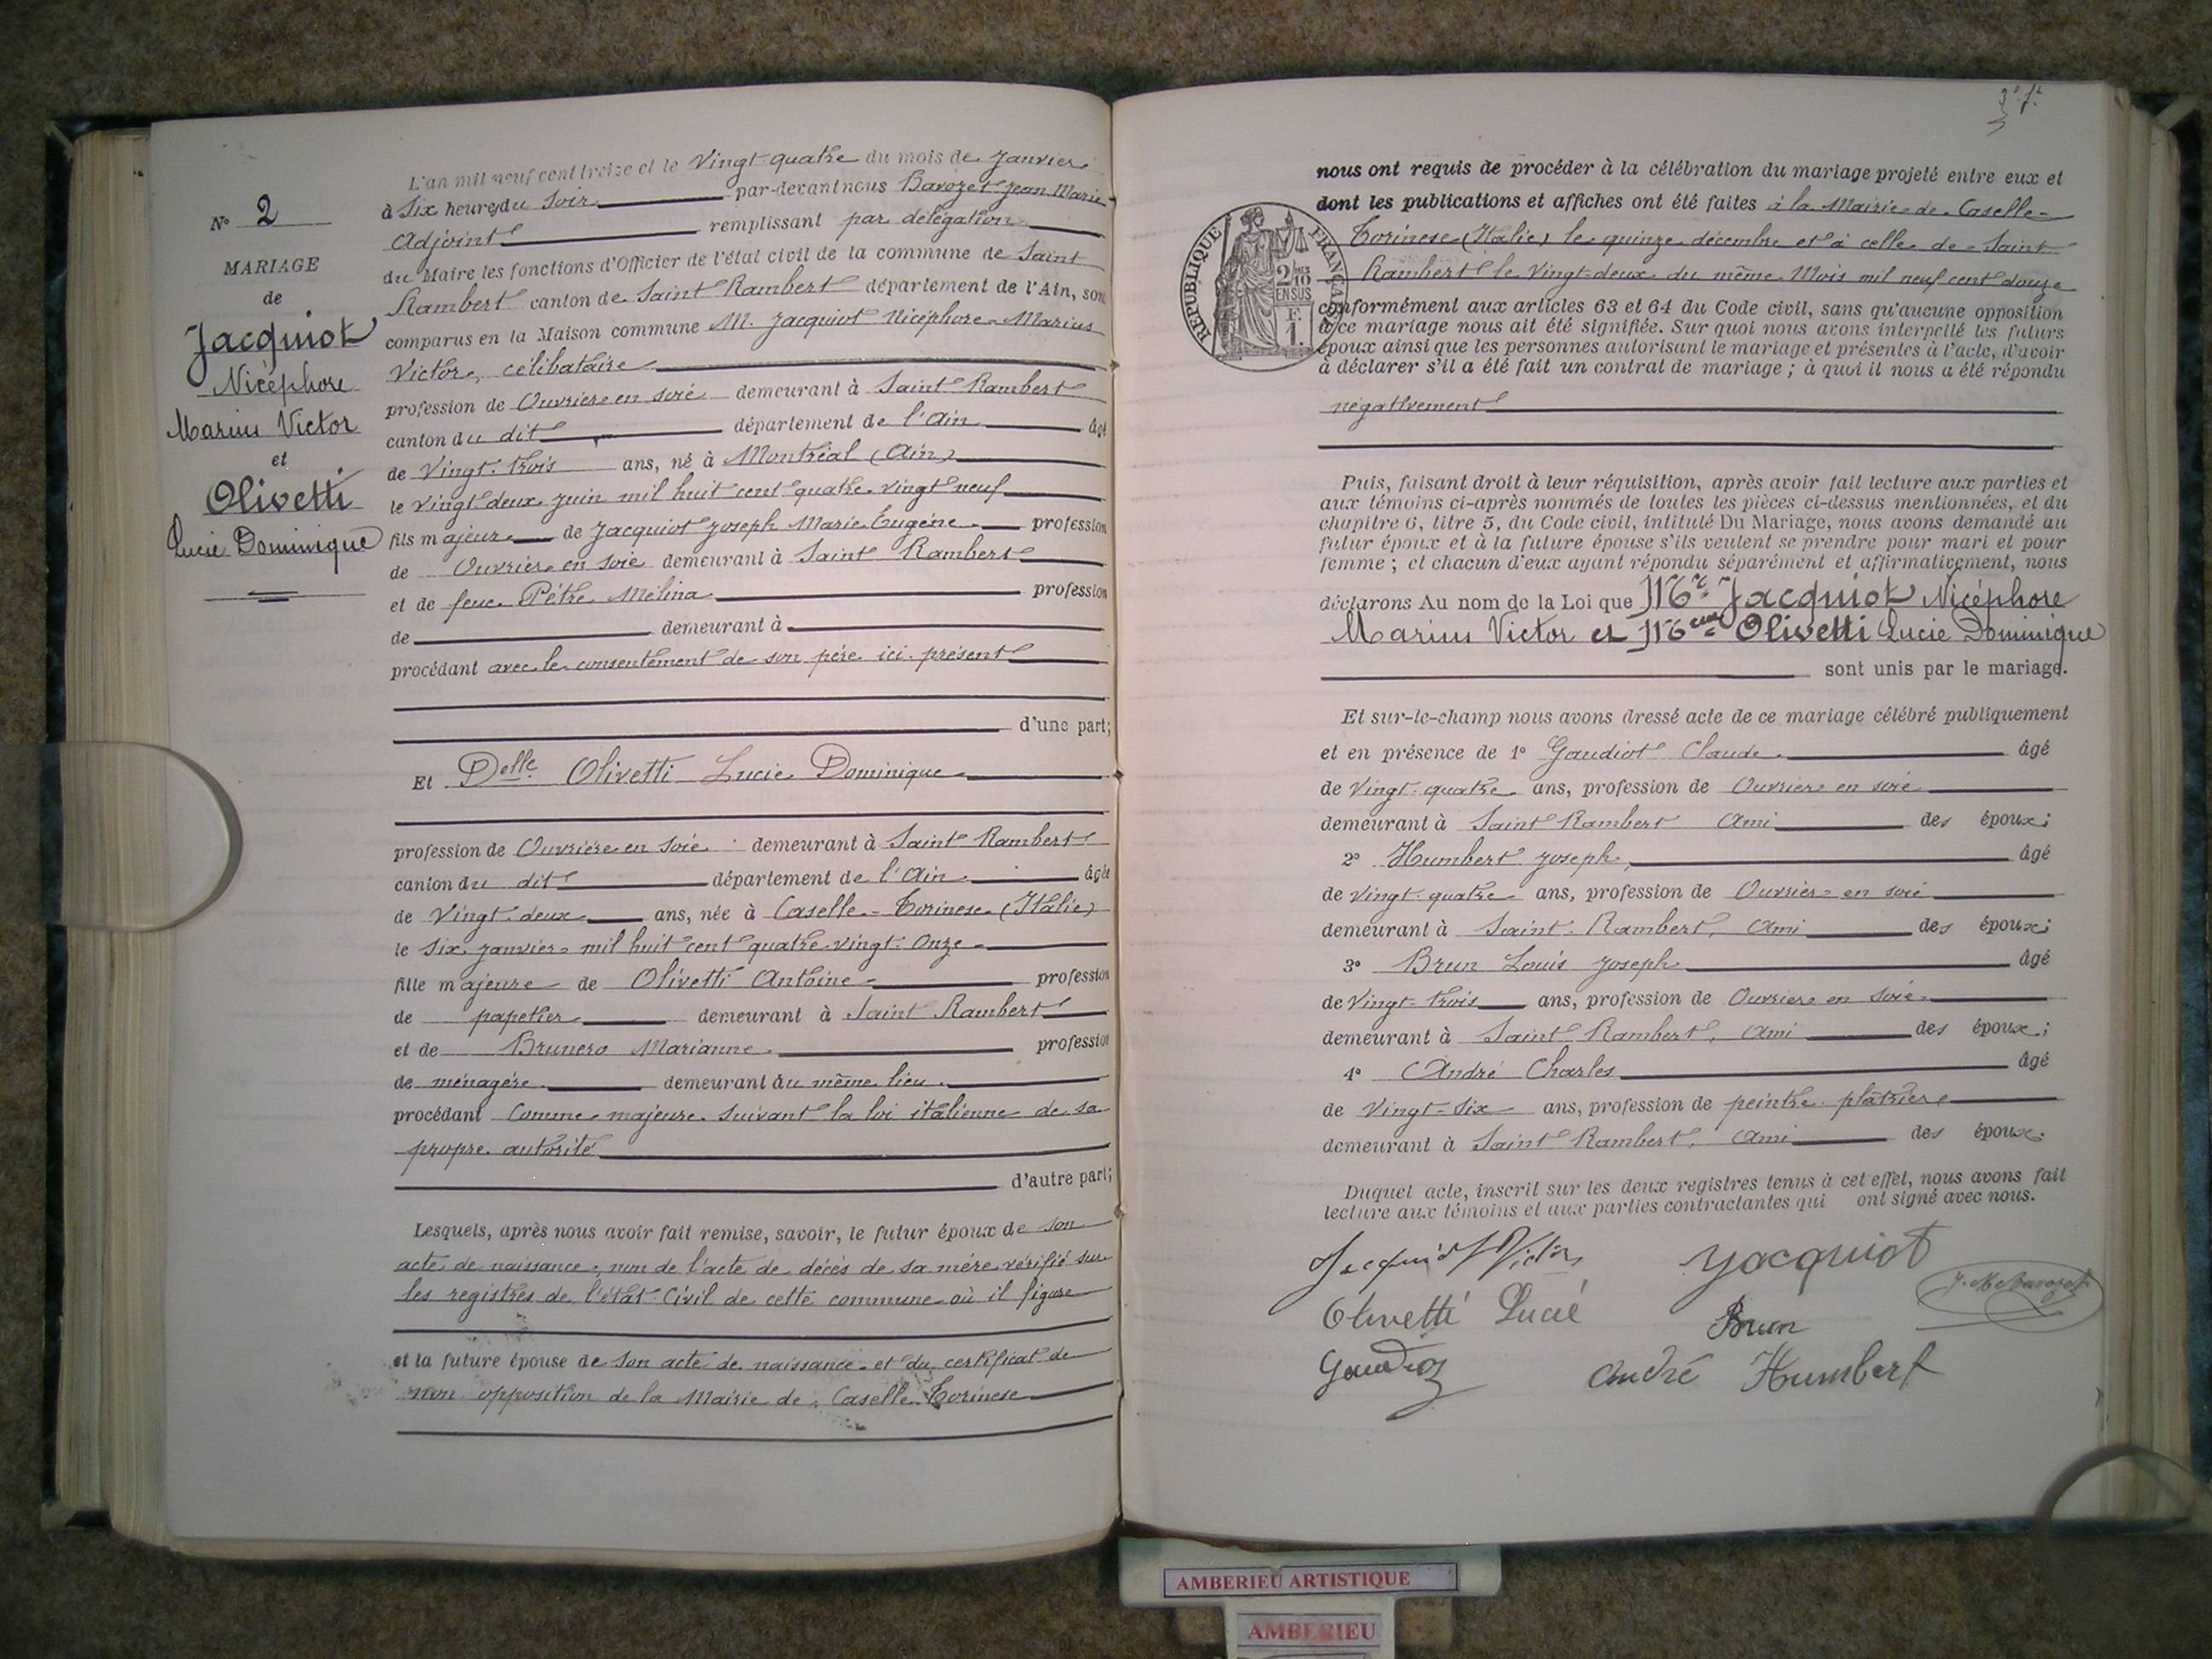 L'an mil neuf cent treize et le Vingt-quatre du mois de Janvier
à Six heures du Soir par-devant nous Bavozet Jean Marie
Adjoint remplissant par délégation
du Maire les fonctions d'Officier de l'état civil de la commune de Saint
Rambert canton de Saint Rambert département de l'Ain, sont
comparus en la Maison commune M. Jacquiot Nicéphore Marius
Victor, célibataire
profession de Ouvrier en soie demeurant à Saint Rambert
canton du dit département de l'Ain âgé
de Vingt-trois ans, né à Montréal (Ain)
le vingt deux juin mil huit cent quatre-vingt neuf
fils majeur de Jacquiot Joseph Marie Eugène profession
de Ouvrier en soie demeurant à Saint Rambert
et de feue Pétre Mélina profession
de demeurant à
procédant avec le consentement de son père ici présent
d'une part;
Et Delle Olivetti Lucie Dominique
profession de Ouvrière en soie demeurant à Saint Rambert
canton du dit département de l'Ain âgée
de Vingt-deux ans, née à Caselle-Torinese (Italie)
le Six janvier mil huit cent quatre-vingt-Onze
fille majeure de Olivetti Antoine profession
de papetier demeurant à Saint Rambert
et de Brunero Marianne profession
de ménagère demeurant au même lieu
procédant Comme majeure suivant la loi italienne de sa
propre autorité
d'autre part;
Lesquels, après nous avoir fait remise, savoir, le futur époux de son
acte de naissance, non de l'acte de décès de sa mère vérifié sur
les registres de l'état-Civil de cette commune où il figure
et la future épouse de son acte de naissance et du certificat de
non opposition de la Mairie de Caselle Torinese
N° 2
MARIAGE
de
Jacquiot
Nicéphore
Marius Victor
et
Olivetti
Lucie Dominique
nous ont requis de procéder à la célébration du mariage projeté entre eux et
dont les publications et affiches ont été faites à la Mairie de Caselle-
Torinese (Italie) le quinze décembre et à celle de Saint
Rambert le Vingt-deux du même Mois mil neuf cent douze
conformément aux articles 63 et 64 du Code civil, sans qu'aucune opposition
à ce mariage nous ait été signifiée. Sur quoi nous avons interpellé les futurs
époux ainsi que les personnes autorisant le mariage et présentes à l'acte, d'avoir
à déclarer s'il a été fait un contrat de mariage ; à quoi il nous a été répondu
négativement
RÉPUBLIQUE FRANÇAISE
2/10 EN SUS
F. 1.
Puis, faisant droit à leur réquisition, après avoir fait lecture aux parties et
aux témoins ci-après nommés de toutes les pièces ci-dessus mentionnées, et du
chapitre 6, titre 5, du Code civil, intitulé Du Mariage, nous avons demandé au
futur époux et à la future épouse s'ils veulent se prendre pour mari et pour
femme ; et chacun d'eux ayant répondu séparément et affirmativement, nous
déclarons Au nom de la Loi que Mr Jacquiot Nicéphore
Marius Victor et Melle Olivetti Lucie Dominique
sont unis par le mariage.
Et sur-le-champ nous avons dressé acte de ce mariage célébré publiquement
et en présence de 1° Gaudiot Claude âgé
de Vingt-quatre ans, profession de Ouvrier en soie
demeurant à Saint Rambert Ami des époux;
2° Humbert Joseph, âgé
de vingt-quatre ans, profession de Ouvrier en soie
demeurant à Saint-Rambert, Ami des époux;
3° Brun Louis Joseph âgé
de Vingt-trois ans, profession de Ouvrier en Soie
demeurant à Saint Rambert, Ami des époux;
4° André Charles âgé
de Vingt-six ans, profession de peintre-plâtrier,
demeurant à Saint Rambert, Ami des époux.
Duquel acte, inscrit sur les deux registres tenus à cet effet, nous avons fait
lecture aux témoins et aux parties contractantes qui ont signé avec nous.
Jacquiot Victor Jacquiot
Olivetti Lucie Brun J. M. Bavozet
Gaudioz André Humbert
AMBERIEU ARTISTIQUE
AMBERIEU